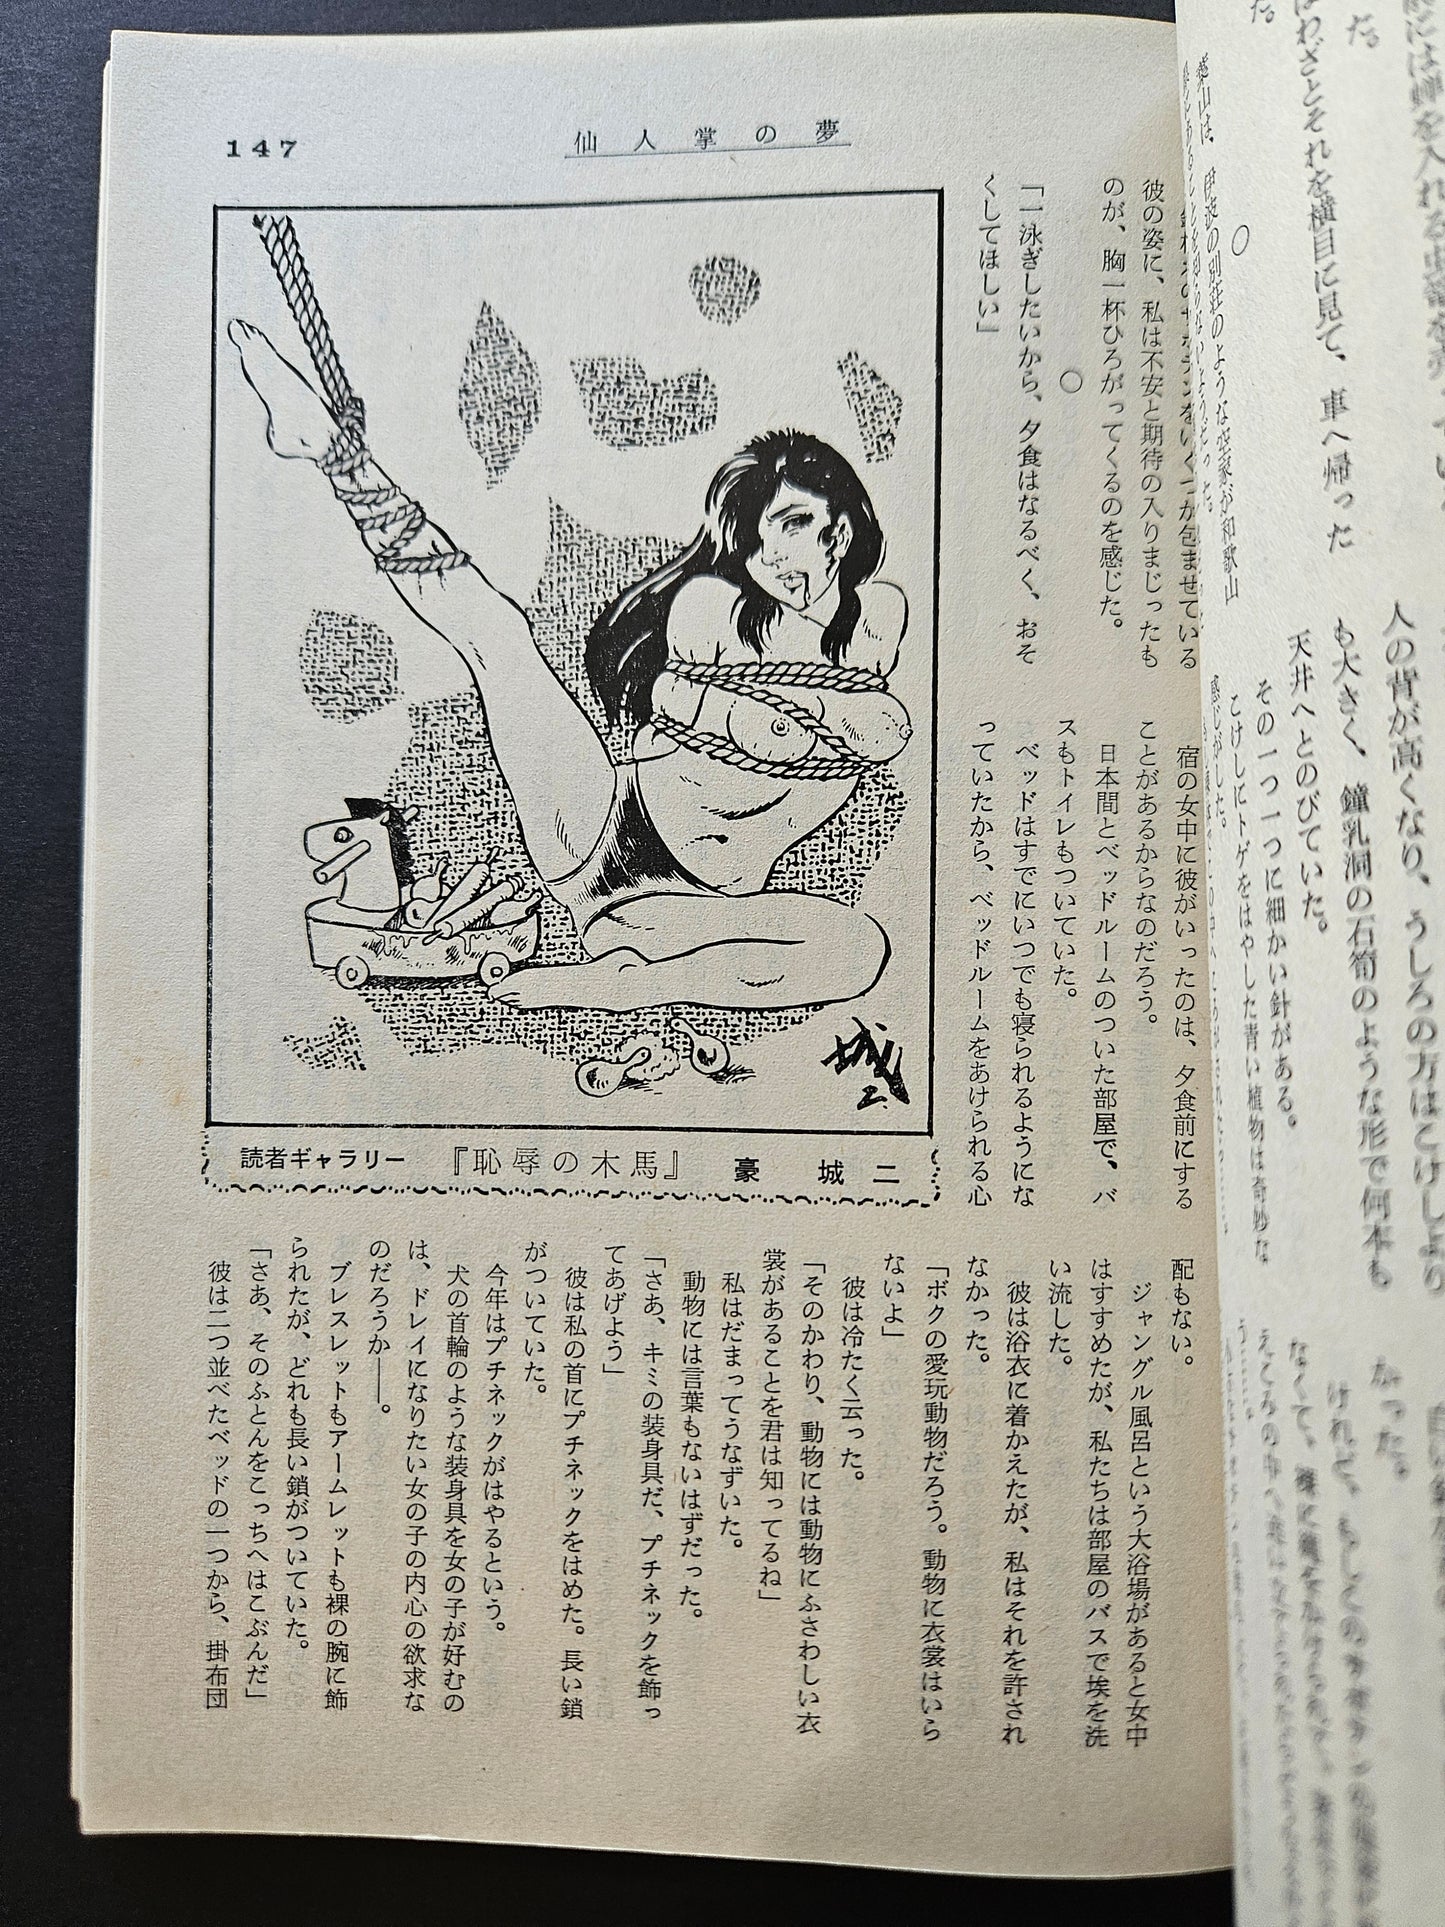 わざとそれを横目に見て、車へ帰った
た。
○
葉山は、伊波の別荘のような空家が和歌山
人の背が高くなり、うしろの方はこけしより
も大きく、鐘乳洞の石筍のような形で何本も
天井へとのびていた。
その一つ一つに細かい針がある。
こけしにトゲをはやした青い植物は奇妙な
感じがした。
147
仙人掌の夢
サボテンをいくつか包ませている
彼の姿に、私は不安と期待の入りまじったも
のが、胸一杯ひろがってくるのを感じた。
○
「一泳ぎしたいから、夕食はなるべく、おそ
くしてほしい」
宿の女中に彼がいったのは、夕食前にする
ことがあるからなのだろう。
日本間とベッドルームのついた部屋で、バ
スもトイレもついていた。
ベッドはすでにいつでも寝られるようにな
っていたから、ベッドルームをあけられる心
配もない。
ジャングル風呂という大浴場があると女中
はすすめたが、私たちは部屋のバスで埃を洗
い流した。
彼は浴衣に着かえたが、私はそれを許され
なかった。
「ボクの愛玩動物だろう。動物に衣裳はいら
ないよ」
彼は冷たく云った。
「そのかわり、動物には動物にふさわしい衣
裳があることを君は知ってるね」
私はだまってうなずいた。
動物には言葉もないはずだった。
「さあ、キミの装身具だ、プチネックを飾っ
てあげよう」
彼は私の首にプチネックをはめた。長い鎖
がついていた。
今年はプチネックがはやるという。
犬の首輪のような装身具を女の子が好むの
は、ドレイになりたい女の子の内心の欲求な
のだろうか――。
ブレスレットもアームレットも裸の腕に飾
られたが、どれも長い鎖がついていた。
「さあ、そのふとんをこっちへはこぶんだ」
彼は二つ並べたベッドの一つから、掛布団
城二
読者ギャラリー 『恥辱の木馬』 豪 城二